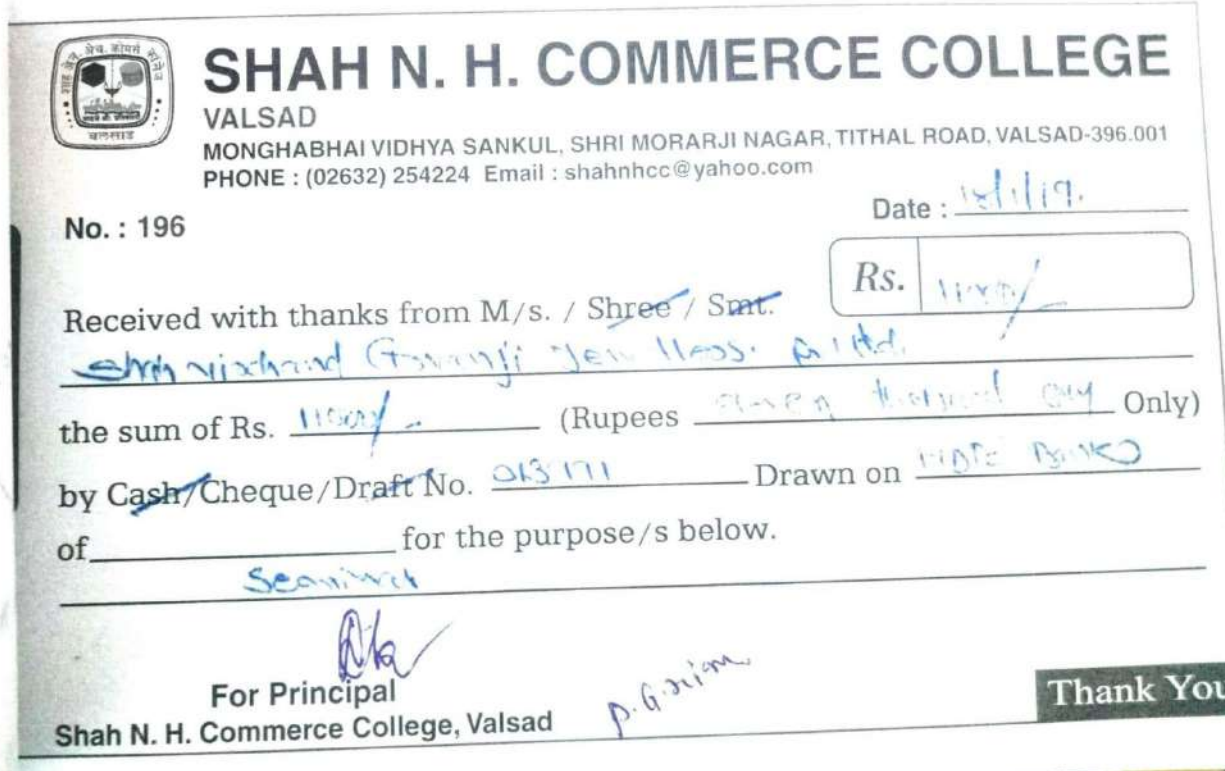 शाह एन. एच. कोमर्स कोलेज
वलसाड
SHAH N. H. COMMERCE COLLEGE
VALSAD
MONGHABHAI VIDHYA SANKUL, SHRI MORARJI NAGAR, TITHAL ROAD, VALSAD-396.001
PHONE : (02632) 254224 Email : shahnhcc@yahoo.com
No. : 196
Date : /1/19.
Rs. 11000/-
Received with thanks from M/s. / Shree / Smt.
Jewllers. P. Ltd.
the sum of Rs. 11000/- (Rupees eleven thousand only Only)
by Cash/Cheque/Draft No. 013171 Drawn on HDFC Bank
of for the purpose/s below.
Seminar
For Principal
Shah N. H. Commerce College, Valsad
Thank You